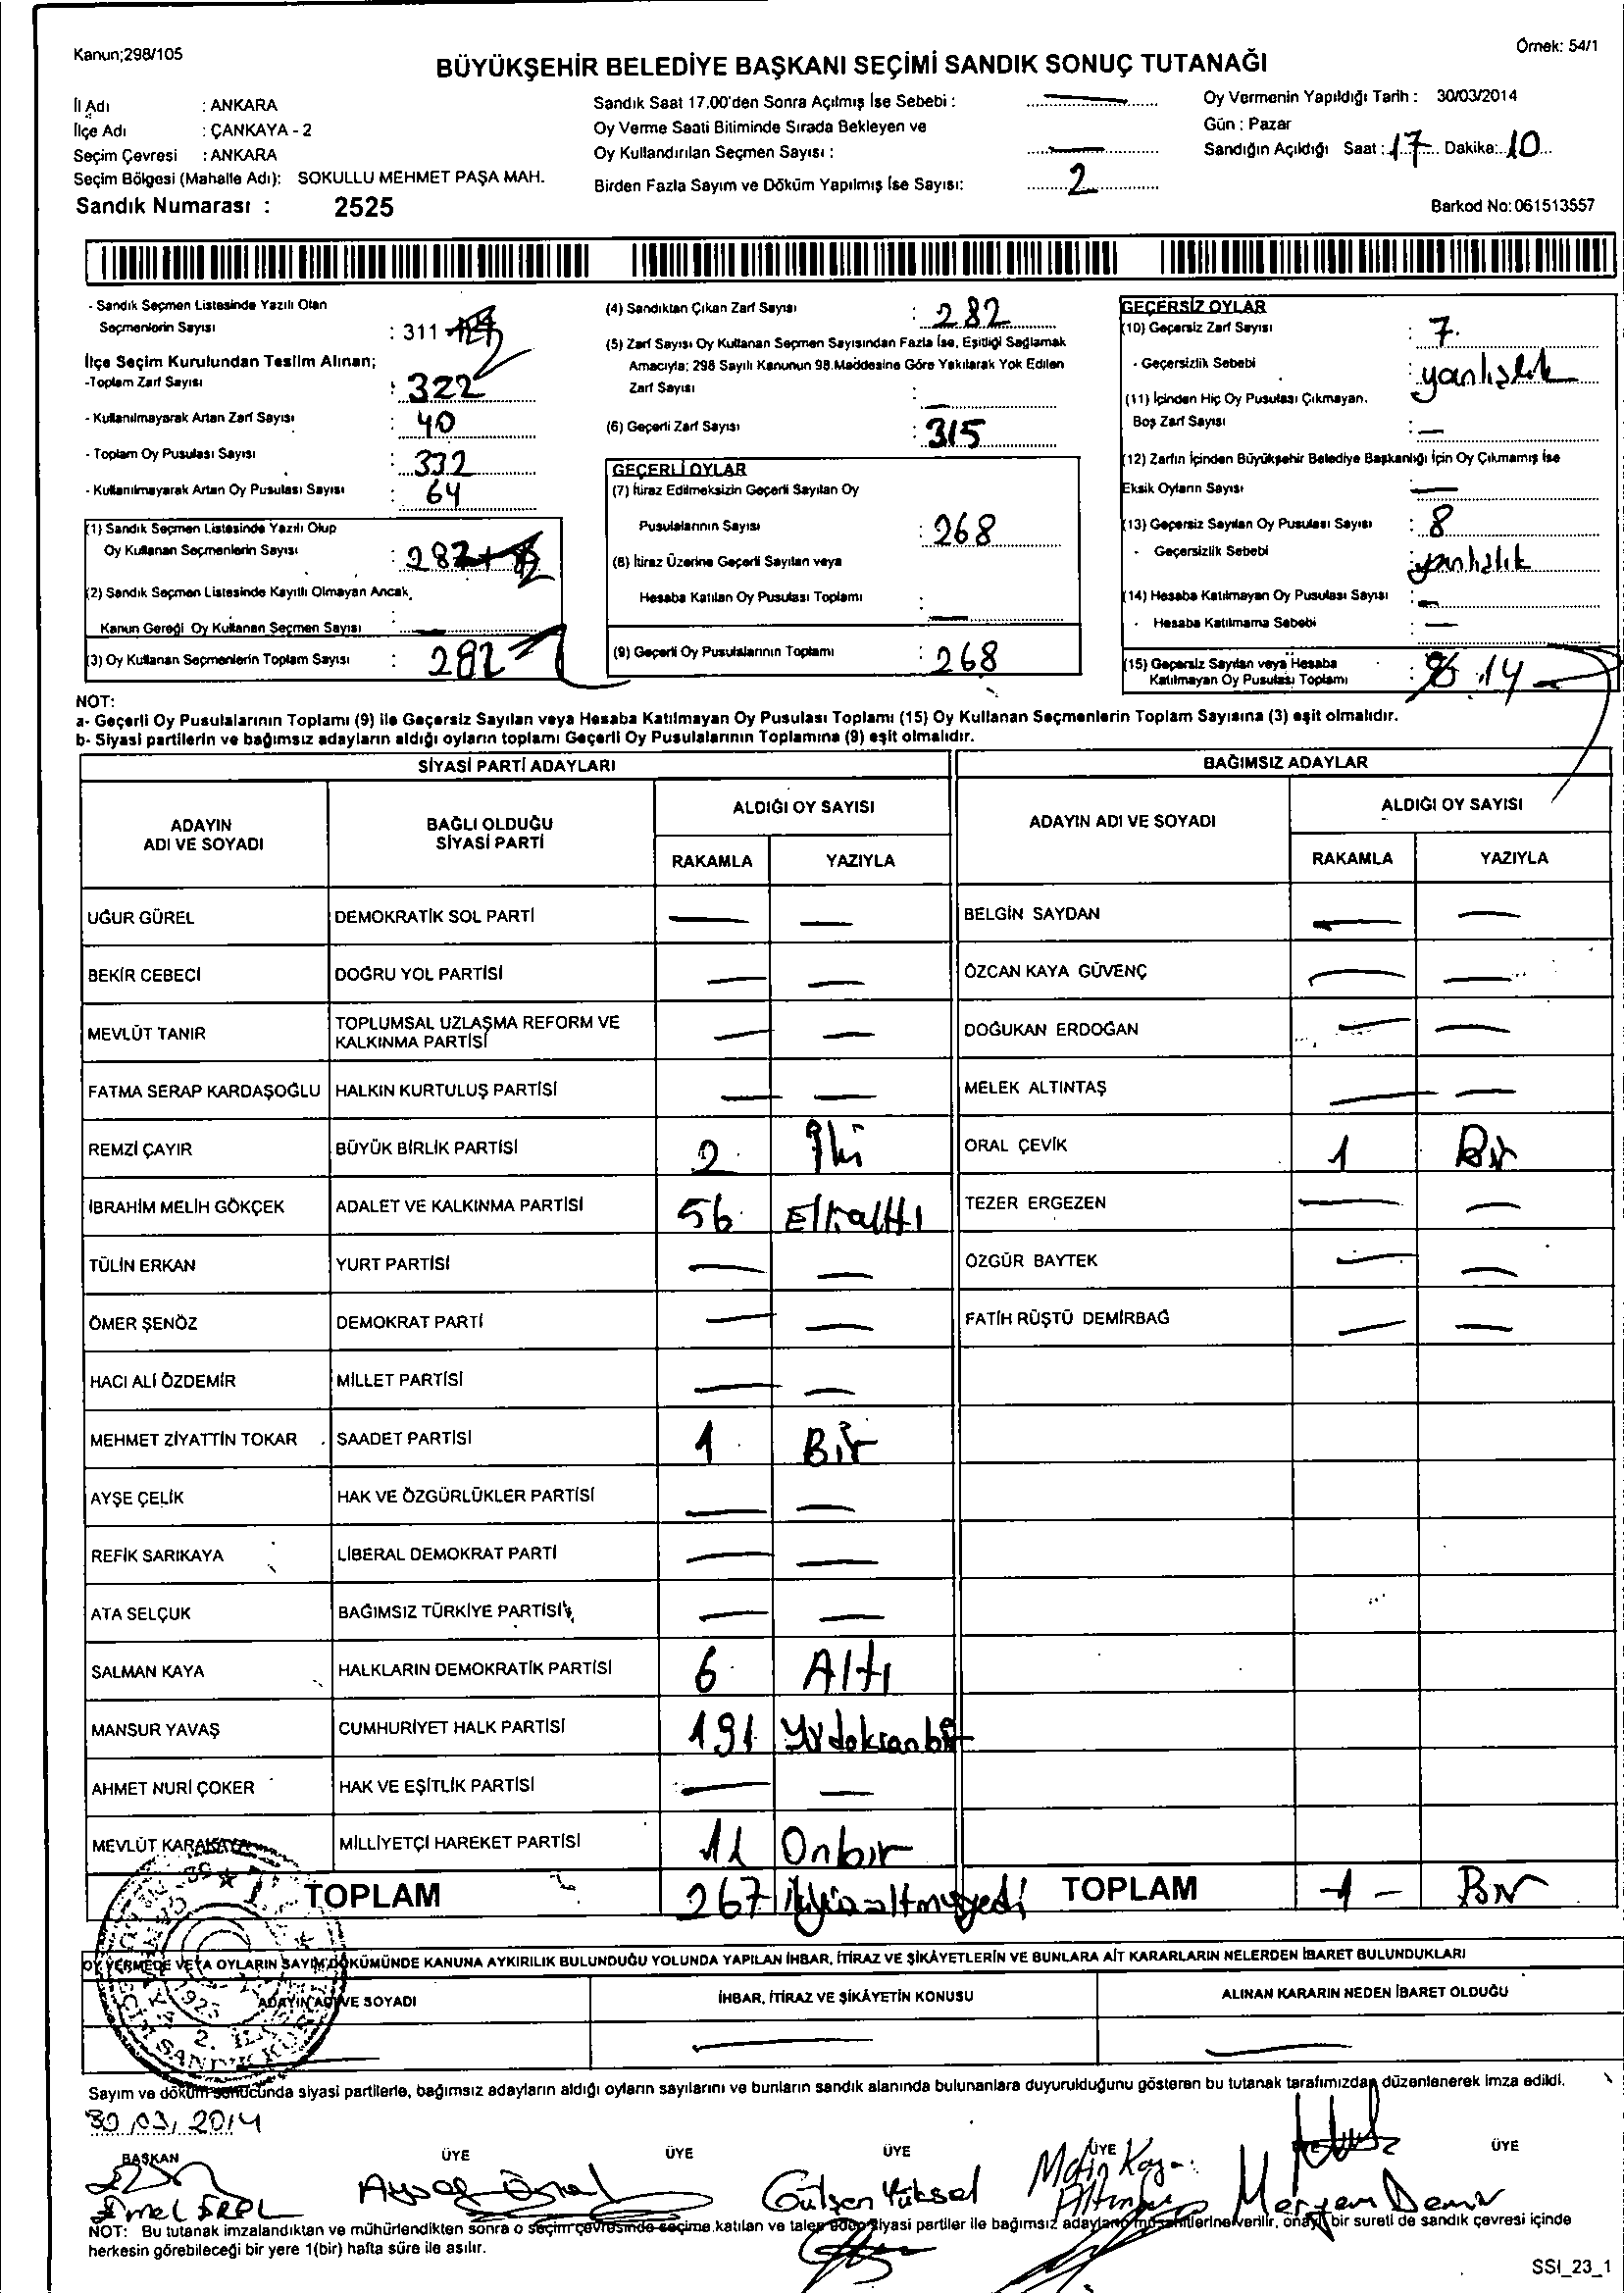 Kanun;298/105
Örnek: 54/1
BÜYÜKŞEHİR BELEDİYE BAŞKANI SEÇİMİ SANDIK SONUÇ TUTANAĞI
İl Adı : ANKARA
İlçe Adı : ÇANKAYA - 2
Seçim Çevresi : ANKARA
Seçim Bölgesi (Mahalle Adı): SOKULLU MEHMET PAŞA MAH.
Sandık Numarası : 2525
Sandık Saat 17.00'den Sonra Açılmış İse Sebebi :
Oy Verme Saati Bitiminde Sırada Bekleyen ve
Oy Kullandırılan Seçmen Sayısı :
Birden Fazla Sayım ve Döküm Yapılmış İse Sayısı: 2
Oy Vermenin Yapıldığı Tarih : 30/03/2014
Gün : Pazar
Sandığın Açıldığı Saat : 17 Dakika: 10
Barkod No: 061513557
- Sandık Seçmen Listesinde Yazılı Olan
Seçmenlerin Sayısı : 311
İlçe Seçim Kurulundan Teslim Alınan;
-Toplam Zarf Sayısı : 322
- Kullanılmayarak Artan Zarf Sayısı : 40
- Toplam Oy Pusulası Sayısı : 332
- Kullanılmayarak Artan Oy Pusulası Sayısı : 64
(1) Sandık Seçmen Listesinde Yazılı Olup
Oy Kullanan Seçmenlerin Sayısı : 282
(2) Sandık Seçmen Listesinde Kayıtlı Olmayan Ancak,
Kanun Gereği Oy Kullanan Seçmen Sayısı : —
(3) Oy Kullanan Seçmenlerin Toplam Sayısı : 282
(4) Sandıktan Çıkan Zarf Sayısı : 282
(5) Zarf Sayısı Oy Kullanan Seçmen Sayısından Fazla İse, Eşitliği Sağlamak
Amacıyla; 298 Sayılı Kanunun 98.Maddesine Göre Yakılarak Yok Edilen
Zarf Sayısı : —
(6) Geçerli Zarf Sayısı : 315
GEÇERLİ OYLAR
(7) İtiraz Edilmeksizin Geçerli Sayılan Oy
Pusulalarının Sayısı : 268
(8) İtiraz Üzerine Geçerli Sayılan veya
Hesaba Katılan Oy Pusulası Toplamı : —
(9) Geçerli Oy Pusulalarının Toplamı : 268
GEÇERSİZ OYLAR
(10) Geçersiz Zarf Sayısı : 7.
- Geçersizlik Sebebi : yanlışlık
(11) İçinden Hiç Oy Pusulası Çıkmayan,
Boş Zarf Sayısı : —
(12) Zarfın İçinden Büyükşehir Belediye Başkanlığı İçin Oy Çıkmamış İse
Eksik Oyların Sayısı : —
(13) Geçersiz Sayılan Oy Pusulası Sayısı : 8
- Geçersizlik Sebebi : yanlışlık
(14) Hesaba Katılmayan Oy Pusulası Sayısı : —
- Hesaba Katılmama Sebebi : —
(15) Geçersiz Sayılan veya Hesaba
Katılmayan Oy Pusulası Toplamı : 14
NOT:
a- Geçerli Oy Pusulalarının Toplamı (9) ile Geçersiz Sayılan veya Hesaba Katılmayan Oy Pusulası Toplamı (15) Oy Kullanan Seçmenlerin Toplam Sayısına (3) eşit olmalıdır.
b- Siyasi partilerin ve bağımsız adayların aldığı oyların toplamı Geçerli Oy Pusulalarının Toplamına (9) eşit olmalıdır.
SİYASİ PARTİ ADAYLARI
ADAYIN ADI VE SOYADI BAĞLI OLDUĞU SİYASİ PARTİ ALDIĞI OY SAYISI
RAKAMLA YAZIYLA
UĞUR GÜREL DEMOKRATİK SOL PARTİ — —
BEKİR CEBECİ DOĞRU YOL PARTİSİ — —
MEVLÜT TANIR TOPLUMSAL UZLAŞMA REFORM VE KALKINMA PARTİSİ — —
FATMA SERAP KARDAŞOĞLU HALKIN KURTULUŞ PARTİSİ — —
REMZİ ÇAYIR BÜYÜK BİRLİK PARTİSİ 2 İki
İBRAHİM MELİH GÖKÇEK ADALET VE KALKINMA PARTİSİ 56 Ellialtı
TÜLİN ERKAN YURT PARTİSİ — —
ÖMER ŞENÖZ DEMOKRAT PARTİ — —
HACI ALİ ÖZDEMİR MİLLET PARTİSİ — —
MEHMET ZİYATTİN TOKAR SAADET PARTİSİ 1 Bir
AYŞE ÇELİK HAK VE ÖZGÜRLÜKLER PARTİSİ — —
REFİK SARIKAYA LİBERAL DEMOKRAT PARTİ — —
ATA SELÇUK BAĞIMSIZ TÜRKİYE PARTİSİ — —
SALMAN KAYA HALKLARIN DEMOKRATİK PARTİSİ 6 Altı
MANSUR YAVAŞ CUMHURİYET HALK PARTİSİ 191 Yüzdoksanbir
AHMET NURİ ÇOKER HAK VE EŞİTLİK PARTİSİ — —
MEVLÜT KARAKAYA MİLLİYETÇİ HAREKET PARTİSİ 11 Onbir
TOPLAM 267 ikiyüzaltmışyedi
BAĞIMSIZ ADAYLAR
ADAYIN ADI VE SOYADI ALDIĞI OY SAYISI
RAKAMLA YAZIYLA
BELGİN SAYDAN — —
ÖZCAN KAYA GÜVENÇ — —
DOĞUKAN ERDOĞAN — —
MELEK ALTINTAŞ — —
ORAL ÇEVİK 1 Bir
TEZER ERGEZEN — —
ÖZGÜR BAYTEK — —
FATİH RÜŞTÜ DEMİRBAĞ — —
TOPLAM 1 Bir
OY VERMEDE VEYA OYLARIN SAYIM DÖKÜMÜNDE KANUNA AYKIRILIK BULUNDUĞU YOLUNDA YAPILAN İHBAR, İTİRAZ VE ŞİKÂYETLERİN VE BUNLARA AİT KARARLARIN NELERDEN İBARET BULUNDUKLARI
ADAYIN ADI VE SOYADI İHBAR, İTİRAZ VE ŞİKÂYETİN KONUSU ALINAN KARARIN NEDEN İBARET OLDUĞU
Sayım ve döküm sonucunda siyasi partilerle, bağımsız adayların aldığı oyların sayılarını ve bunların sandık alanında bulunanlara duyurulduğunu gösteren bu tutanak tarafımızdan düzenlenerek imza edildi.
30.03.2014
BAŞKAN ÜYE ÜYE ÜYE ÜYE ÜYE
Emel EROL Aysel Önal Gülşen Yüksel Metin Kaya Meryem Demir
NOT: Bu tutanak imzalandıktan ve mühürlendikten sonra o seçim çevresinde seçime katılan ve talep eden siyasi partiler ile bağımsız adayların müşahitlerine verilir, onaylı bir sureti de sandık çevresi içinde
herkesin görebileceği bir yere 1(bir) hafta süre ile asılır.
SSI_23_1